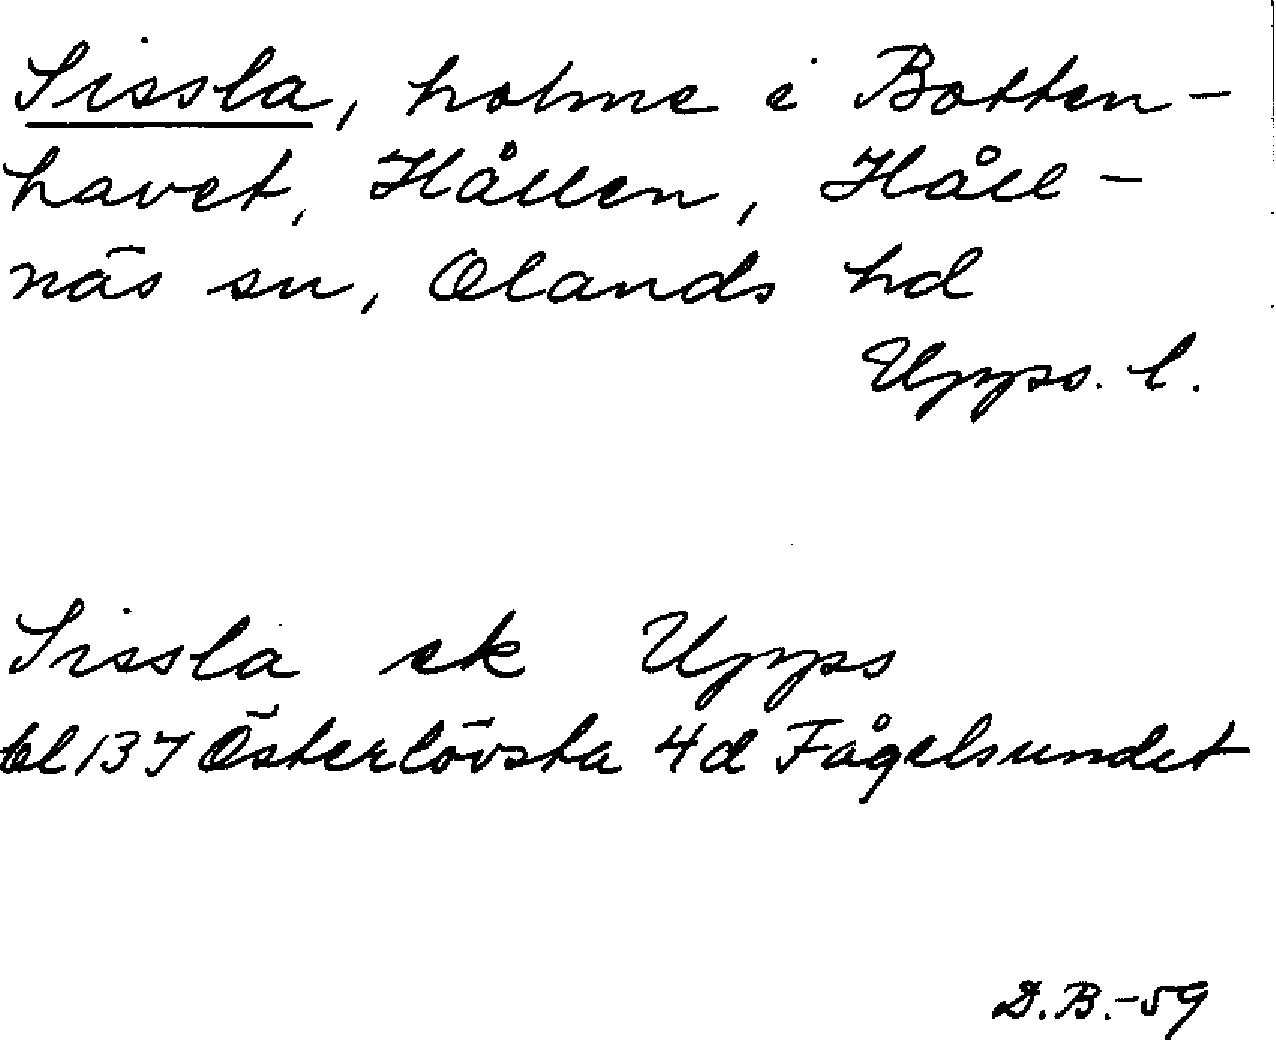 Sissla, holme i Botten-
havet, Hållen, Håll-
näs sn, Olands hd
Upps. l.
Sissla ek Upps
bl 137 Österlövsta 4d Fågelsundet
D.B.-59